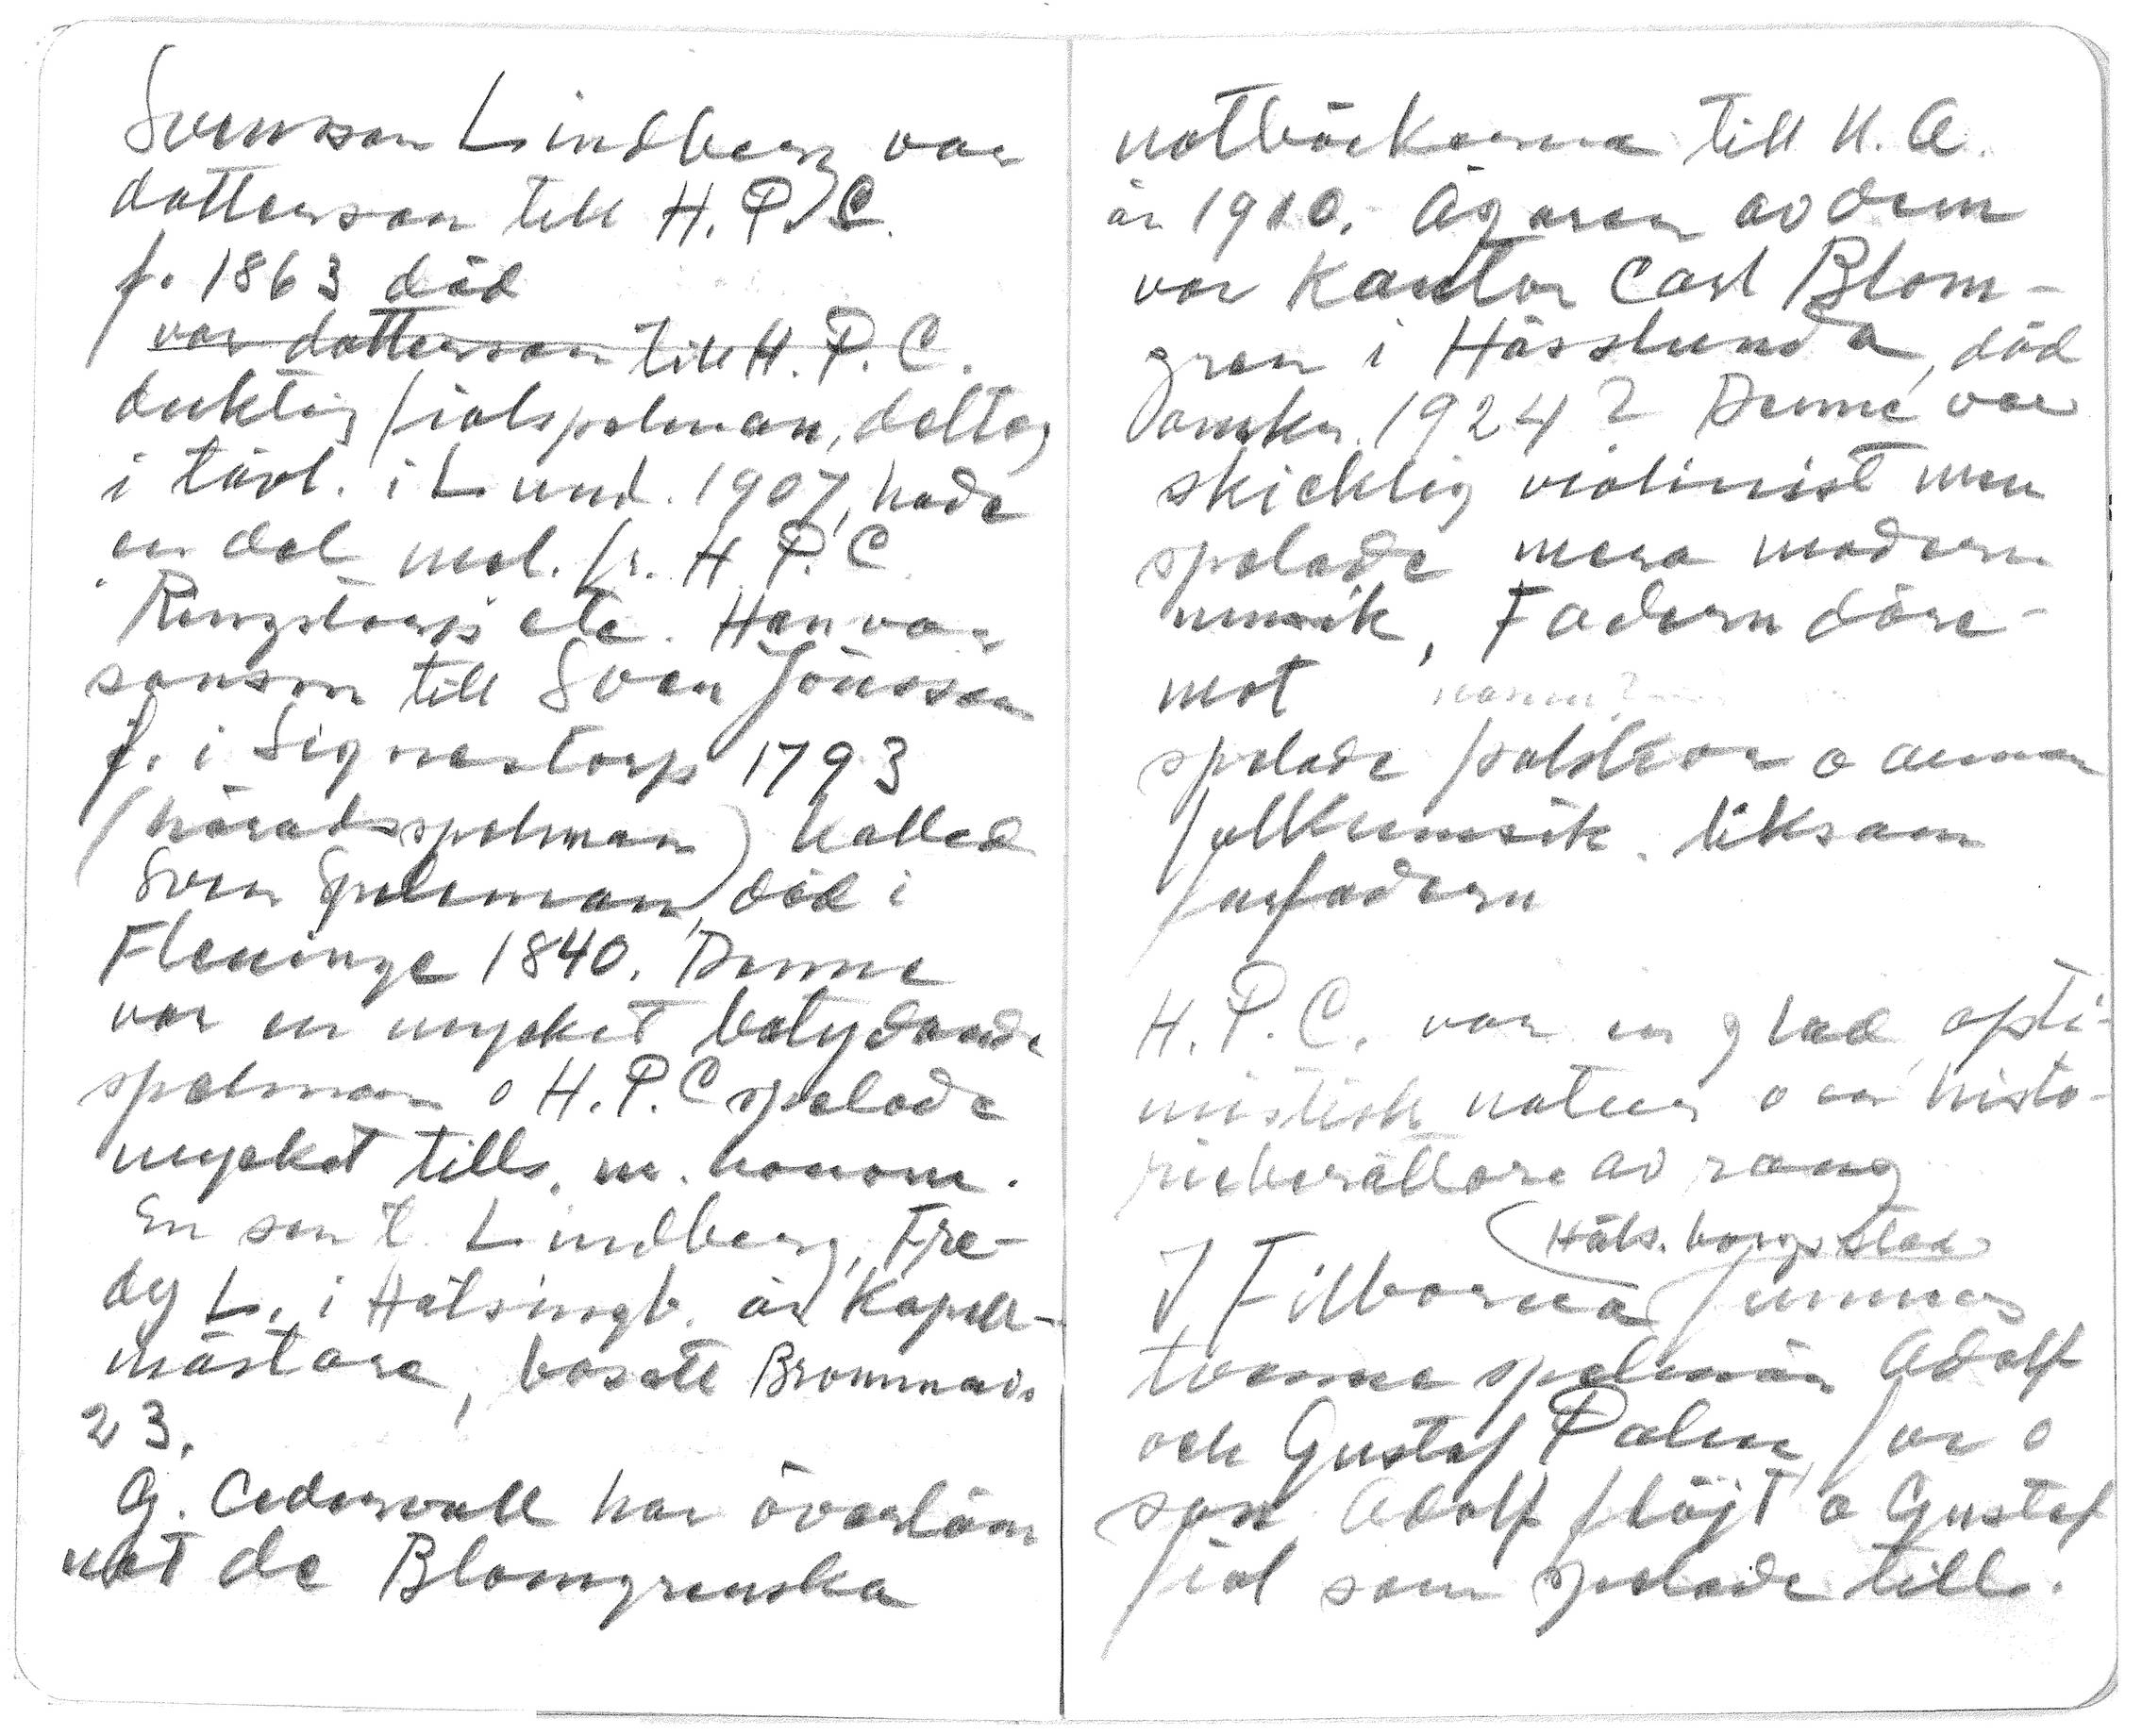 Svensson Lindberg var
dotterson till H. P. C.
f. 1863 död
var dotterson till H. P. C.
duktig fiolspelman, deltog
i tävl. i Lund. 1907, hade
en del mel. fr. H. P. C.
Ringstorp etc. Han var
sonson till Sven Jönsson
f. i Signestorp 1793
(häradsspelman) kallad
Sven Speleman, död i
Fleninge 1840. Denne
var en mycket betydande
spelman o H. P. C spelade
mycket tills. m. honom.
En son t. Lindberg, Fre-
dy L. i Hälsingb. är kapell-
mästare, bosatt Brommav.
23.
G. Cedervall har överläm
nat de Blomgrenska
notböckerna till N. A.
år 1910. Ägaren av dem
var Kantor Carl Blom-
gren i Hässlunda, död
omkr. 1924? Denne var
skicklig violinist men
spelade mera modern
musik, Fadern däre-
mot namn?
spelade polskor o annan
folkmusik. liksom
farfadern
H. P. C. var en glad, opti-
mistisk natur o en histo-
rieberättare av rang
(Häls. borgs stad
I Filborna funnos
tvenne spelmän Adolf
och Gustaf Palm, far o
son Adolf flöjt o Gustaf
fiol som spelade tills.